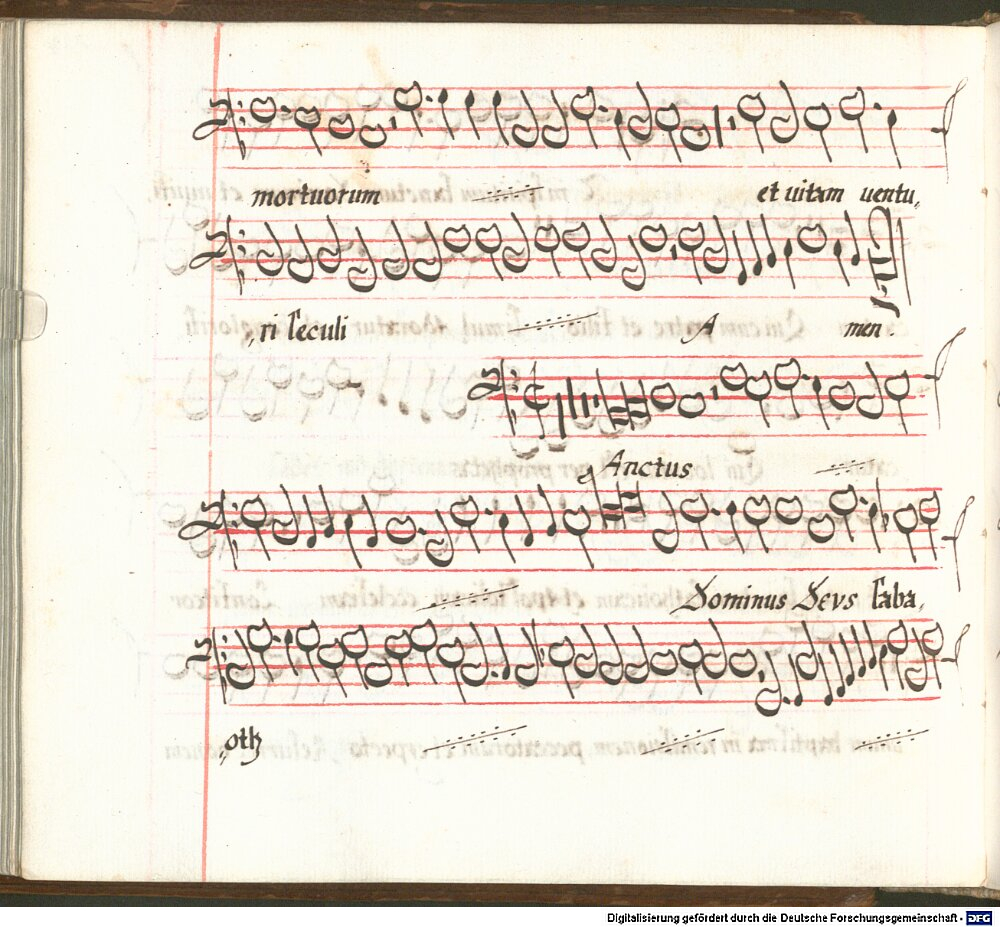 mortuorum et uitam uentu,
,,ri seculi A men.
SAnctus
Dominus Deus saba,
,,oth
Digitalisierung gefördert durch die Deutsche Forschungsgemeinschaft - DFG